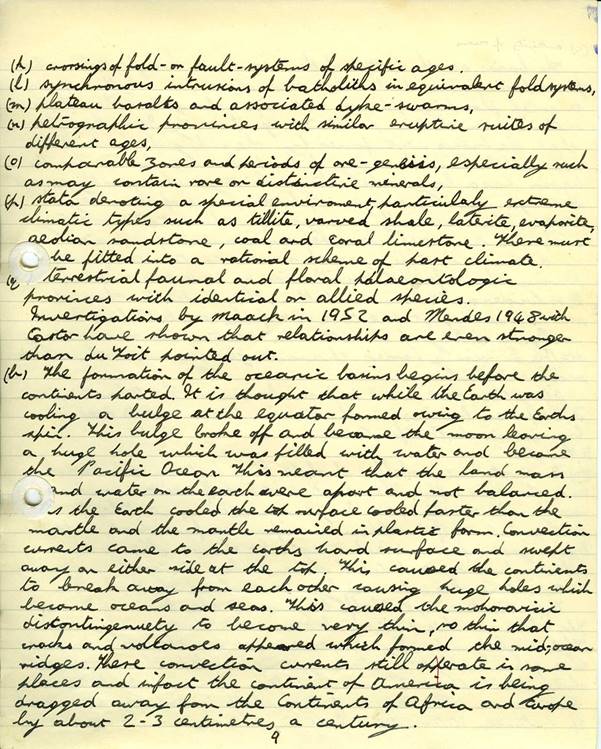 (k) crossings of fold-on fault-systems of specific ages.
(l) synchronous intrusions of batholiths in equivalent fold systems,
(m) plateau basalts and associated dyke-swarms,
(n) petrographic provinces with similar eruptive suites of
different ages,
(o) comparable zones and periods of ore-genesis, especially such
as may contain rare or distinctive minerals,
(p) stata denoting a special enviroment, particulaly extreme
climatic types such as tillite, varved shale, laterite, evaporite,
aeolian sandstone, coal and coral limestone. These must
be fitted into a rational scheme of past climate.
(q terrestrial faunal and floral palaeontologic
provinces with identical or allied species.
Investigations by Maack in 1952 and Mendes 1948 with
Castor have shown that relationships are even stronger
than du Toit pointed out.
(b) The formation of the oceanic basins begins before the
continents parted. It is thought that while the Earth was
cooling a bulge at the equator formed owing to the Earths
spin. This bulge broke off and became the moon leaving
a huge hole which was filled with water and became
the Pacific Ocean. This meant that the land mass
and water on the earth were apart and not balanced.
s the Earth cooled the surface cooled faster than the
mantle and the mantle remained in plastic form. Convection
currents came to the Earths hard surface and swept
away on either side at the top. This caused the continents
to break away from each other causing huge holes which
become oceans and seas. This caused the mohorovicic
discontinguenuety to become very thin, so thin that
cracks and volcanoes appeared which formed the mid-ocean
ridges. These convection currents still opperate in some
places and infact the continent of America is being
dragged away fom the Continents of Africa and Europe
by about 2-3 centimetres a century.
9